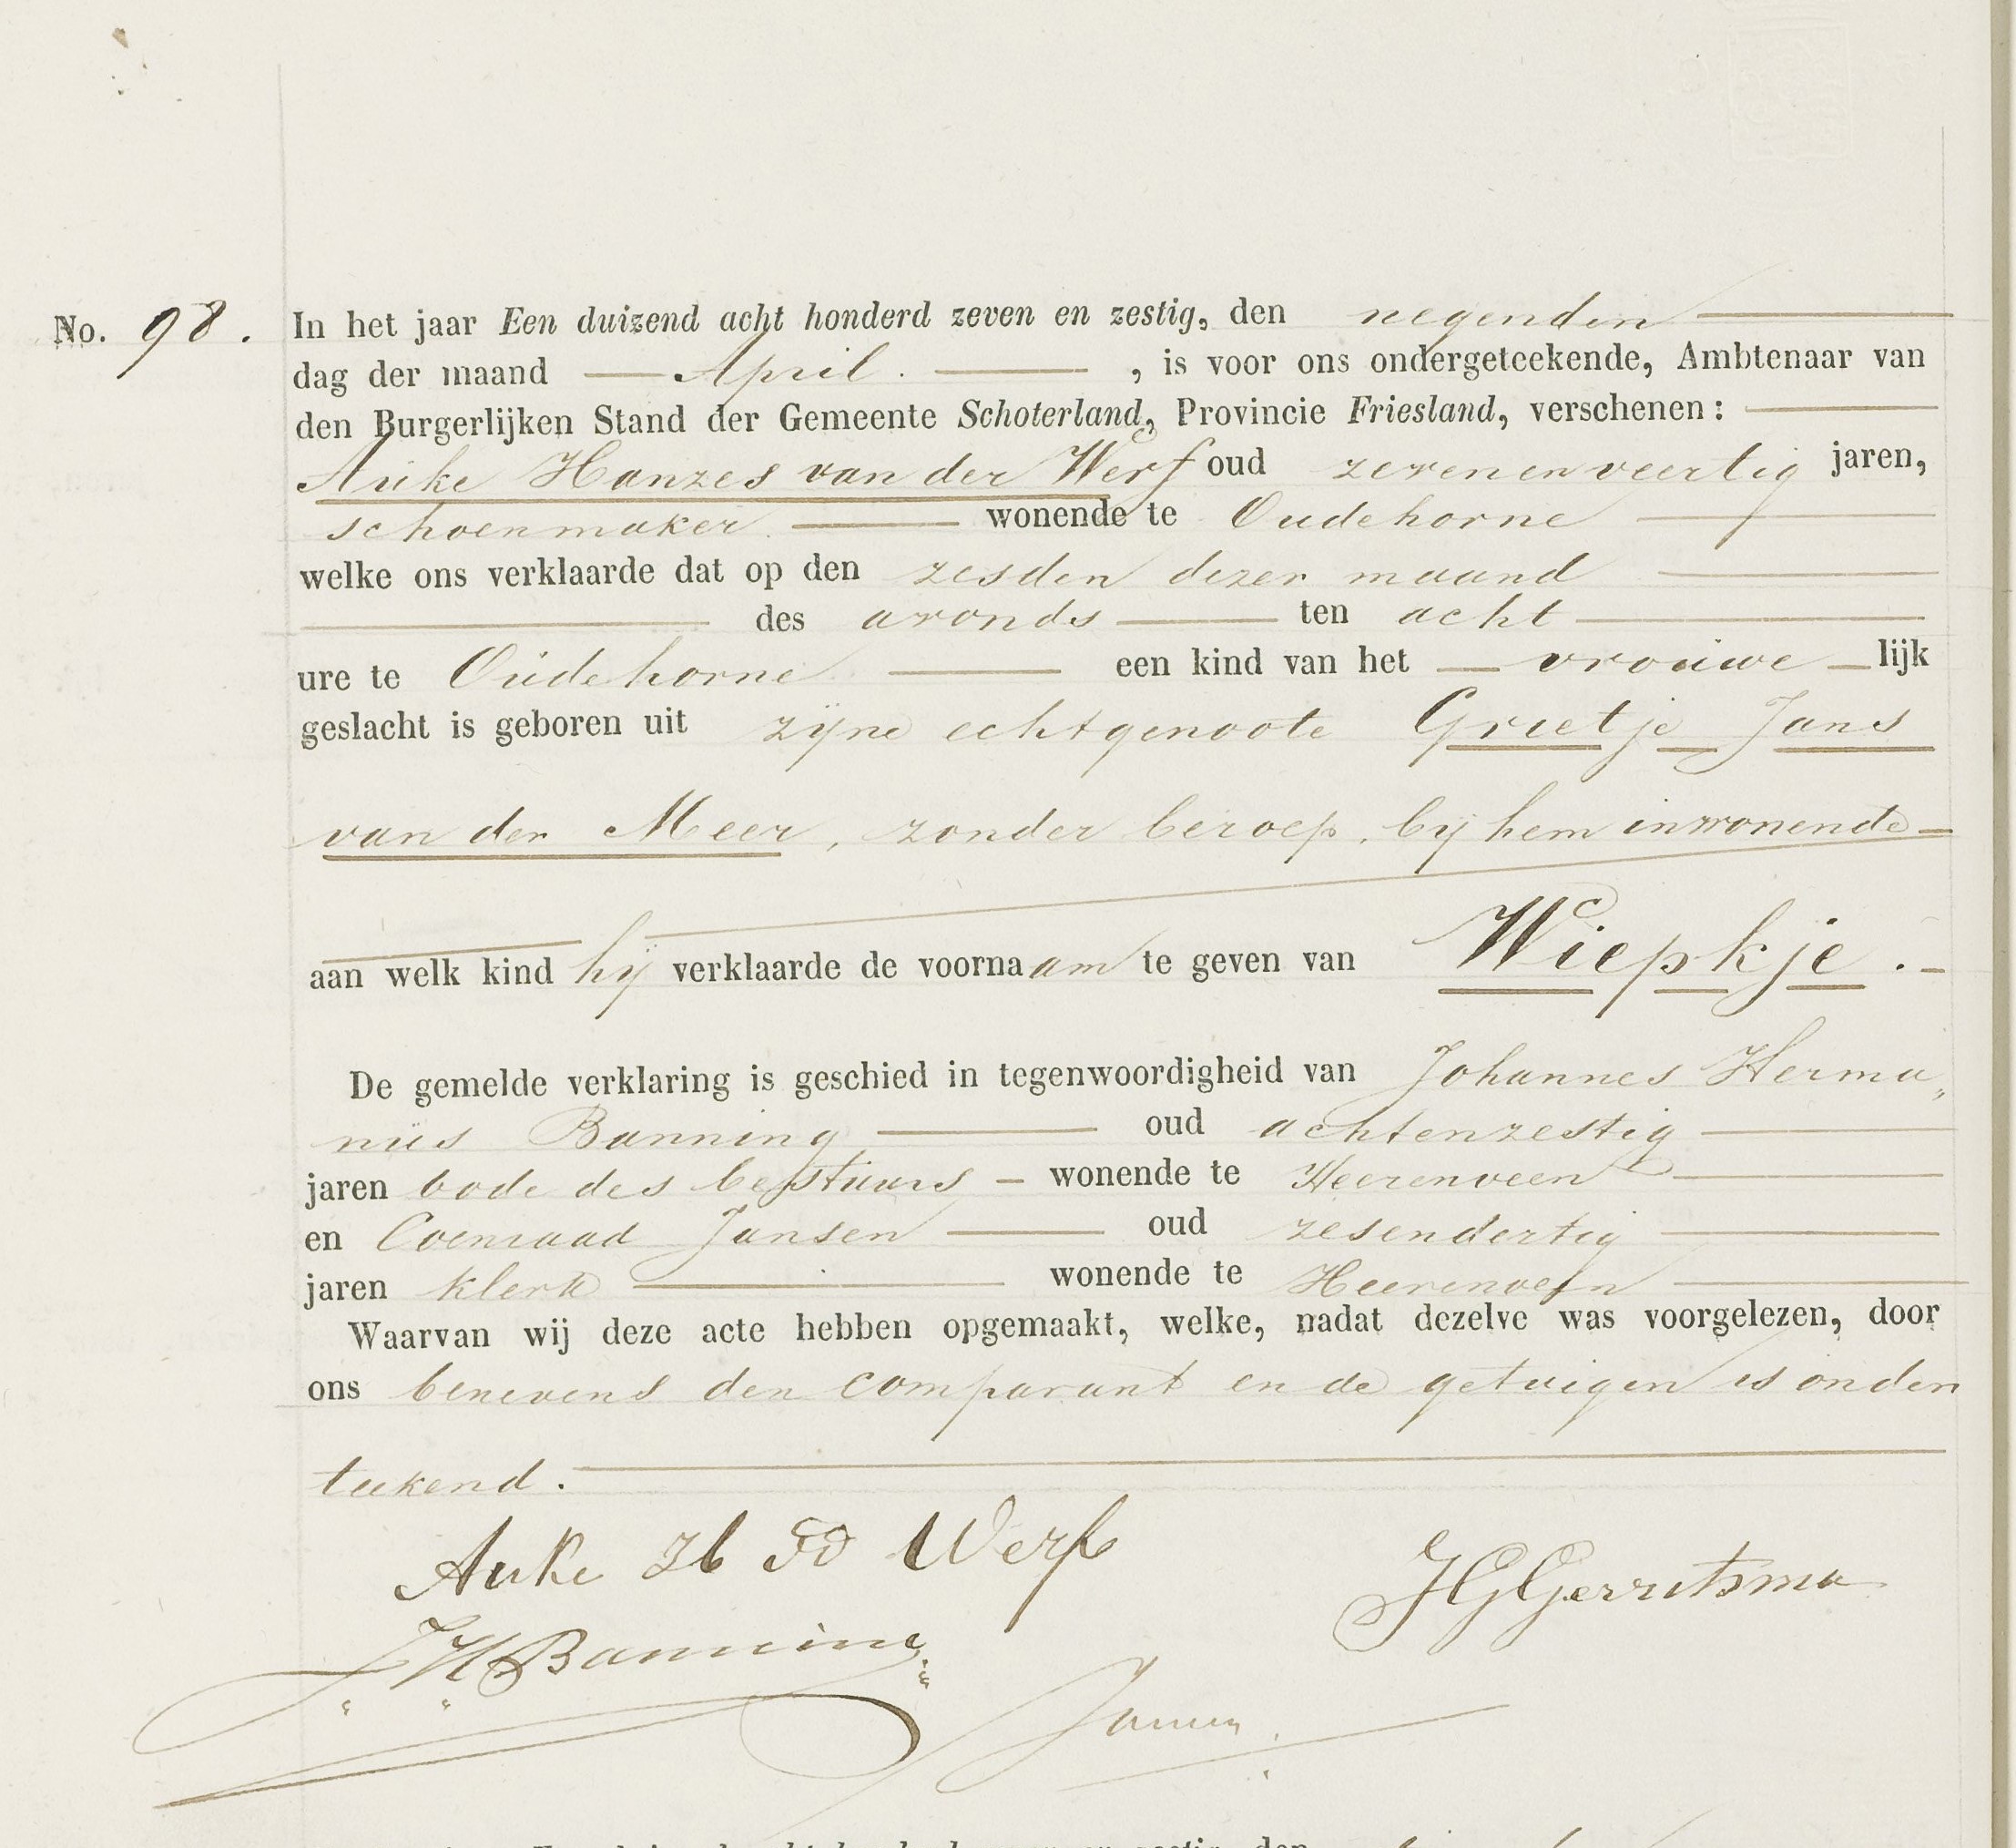 No. 98. In het jaar Een duizend acht honderd zeven en zestig, den negenden
dag der maand April. , is voor ons ondergeteekende, Ambtenaar van
den Burgerlijken Stand der Gemeente Schoterland, Provincie Friesland, verschenen:
Auke Hanzes van der Werf oud zevenenveertig jaren,
schoenmaker wonende te Oudehorne
welke ons verklaarde dat op den zesden dezer maand
des avonds ten acht
ure te Oudehorne een kind van het vrouwelijk
geslacht is geboren uit zijne echtgenoote Grietje Jans
van der Meer, zonder beroep, bij hem inwonende
aan welk kind hij verklaarde de voornaam te geven van Wiepkje.
De gemelde verklaring is geschied in tegenwoordigheid van Johannes Herma„
nus Banning oud achtenzestig
jaren bode des bestuurs wonende te Heerenveen
en Coenraad Jansen oud zesendertig
jaren klerk wonende te Heerenveen
Waarvan wij deze acte hebben opgemaakt, welke, nadat dezelve was voorgelezen, door
ons benevens den comparant en de getuigen is onder
teekend.
Auke Werf
JGGerritsma
JHBanning
Jansen